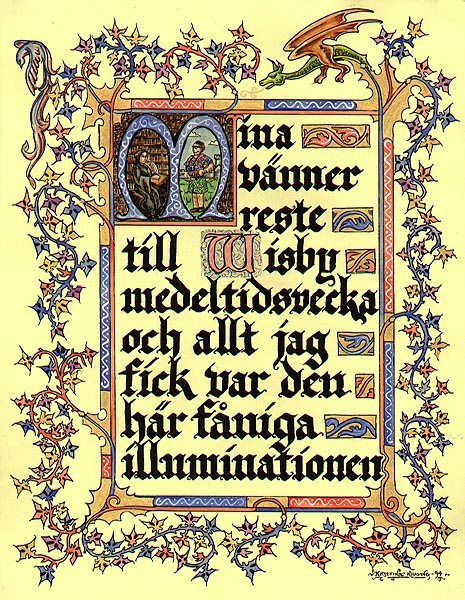 Mina
vänner
reste
till Wisby
medeltidsvecka
och allt jag
fick var den
här fåniga
illuminationen